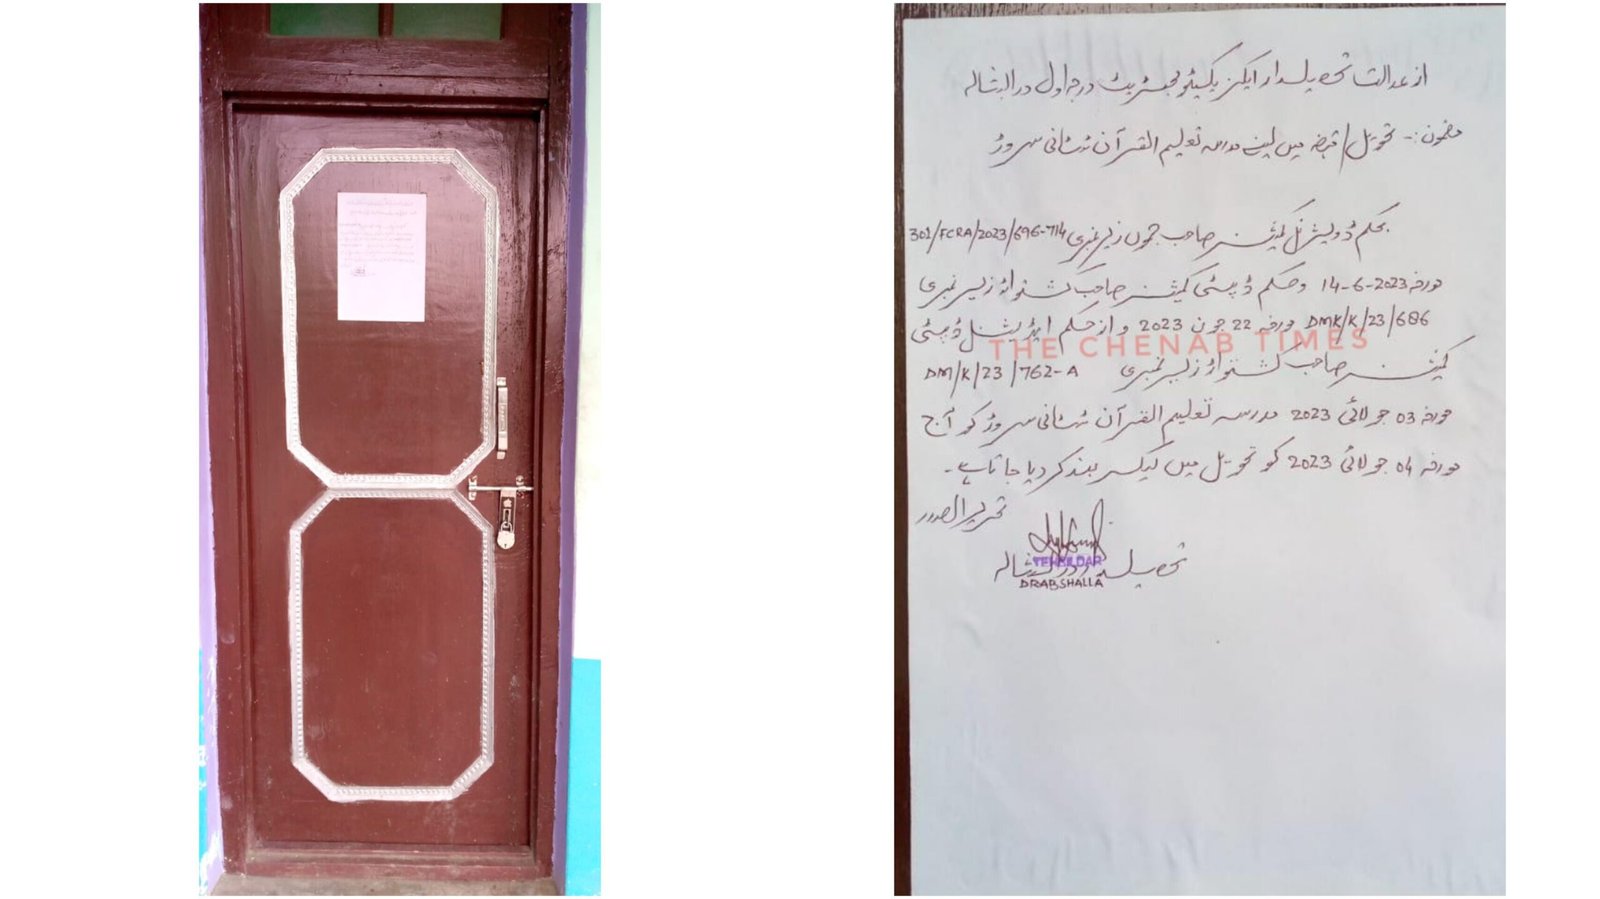 از عدالت تحصیلدار ایگزیکیٹو مجسٹریٹ درجہ اول درابشالہ
مضمون:- تحویل/قبضہ میں لینے مدرسہ تعلیم القرآن ٹٹانی سروڑ
بحکم ڈویژنل کمیشنر صاحب جموں زیر نمبری 301/FCRA/2023/696-714
مورخہ 14-6-2023 و حکم ڈپٹی کمیشنر صاحب کشتواڑ زیر نمبری
DMK/K/23/686 مورخہ 22 جون 2023 و از حکم ایڈیشنل ڈپٹی
THE CHENAB TIMES
کمیشنر صاحب کشتواڑ زیر نمبری DM/K/23/762-A
مورخہ 03 جولائی 2023 مدرسہ تعلیم القرآن ٹٹانی سروڑ کو آج
مورخہ 04 جولائی 2023 کو تحویل میں لیکر بند کر دیا جاتا ہے۔
تحریر الصدر
TEHSILDAR
DRABSHALLA
تحصیلدار درابشالہ